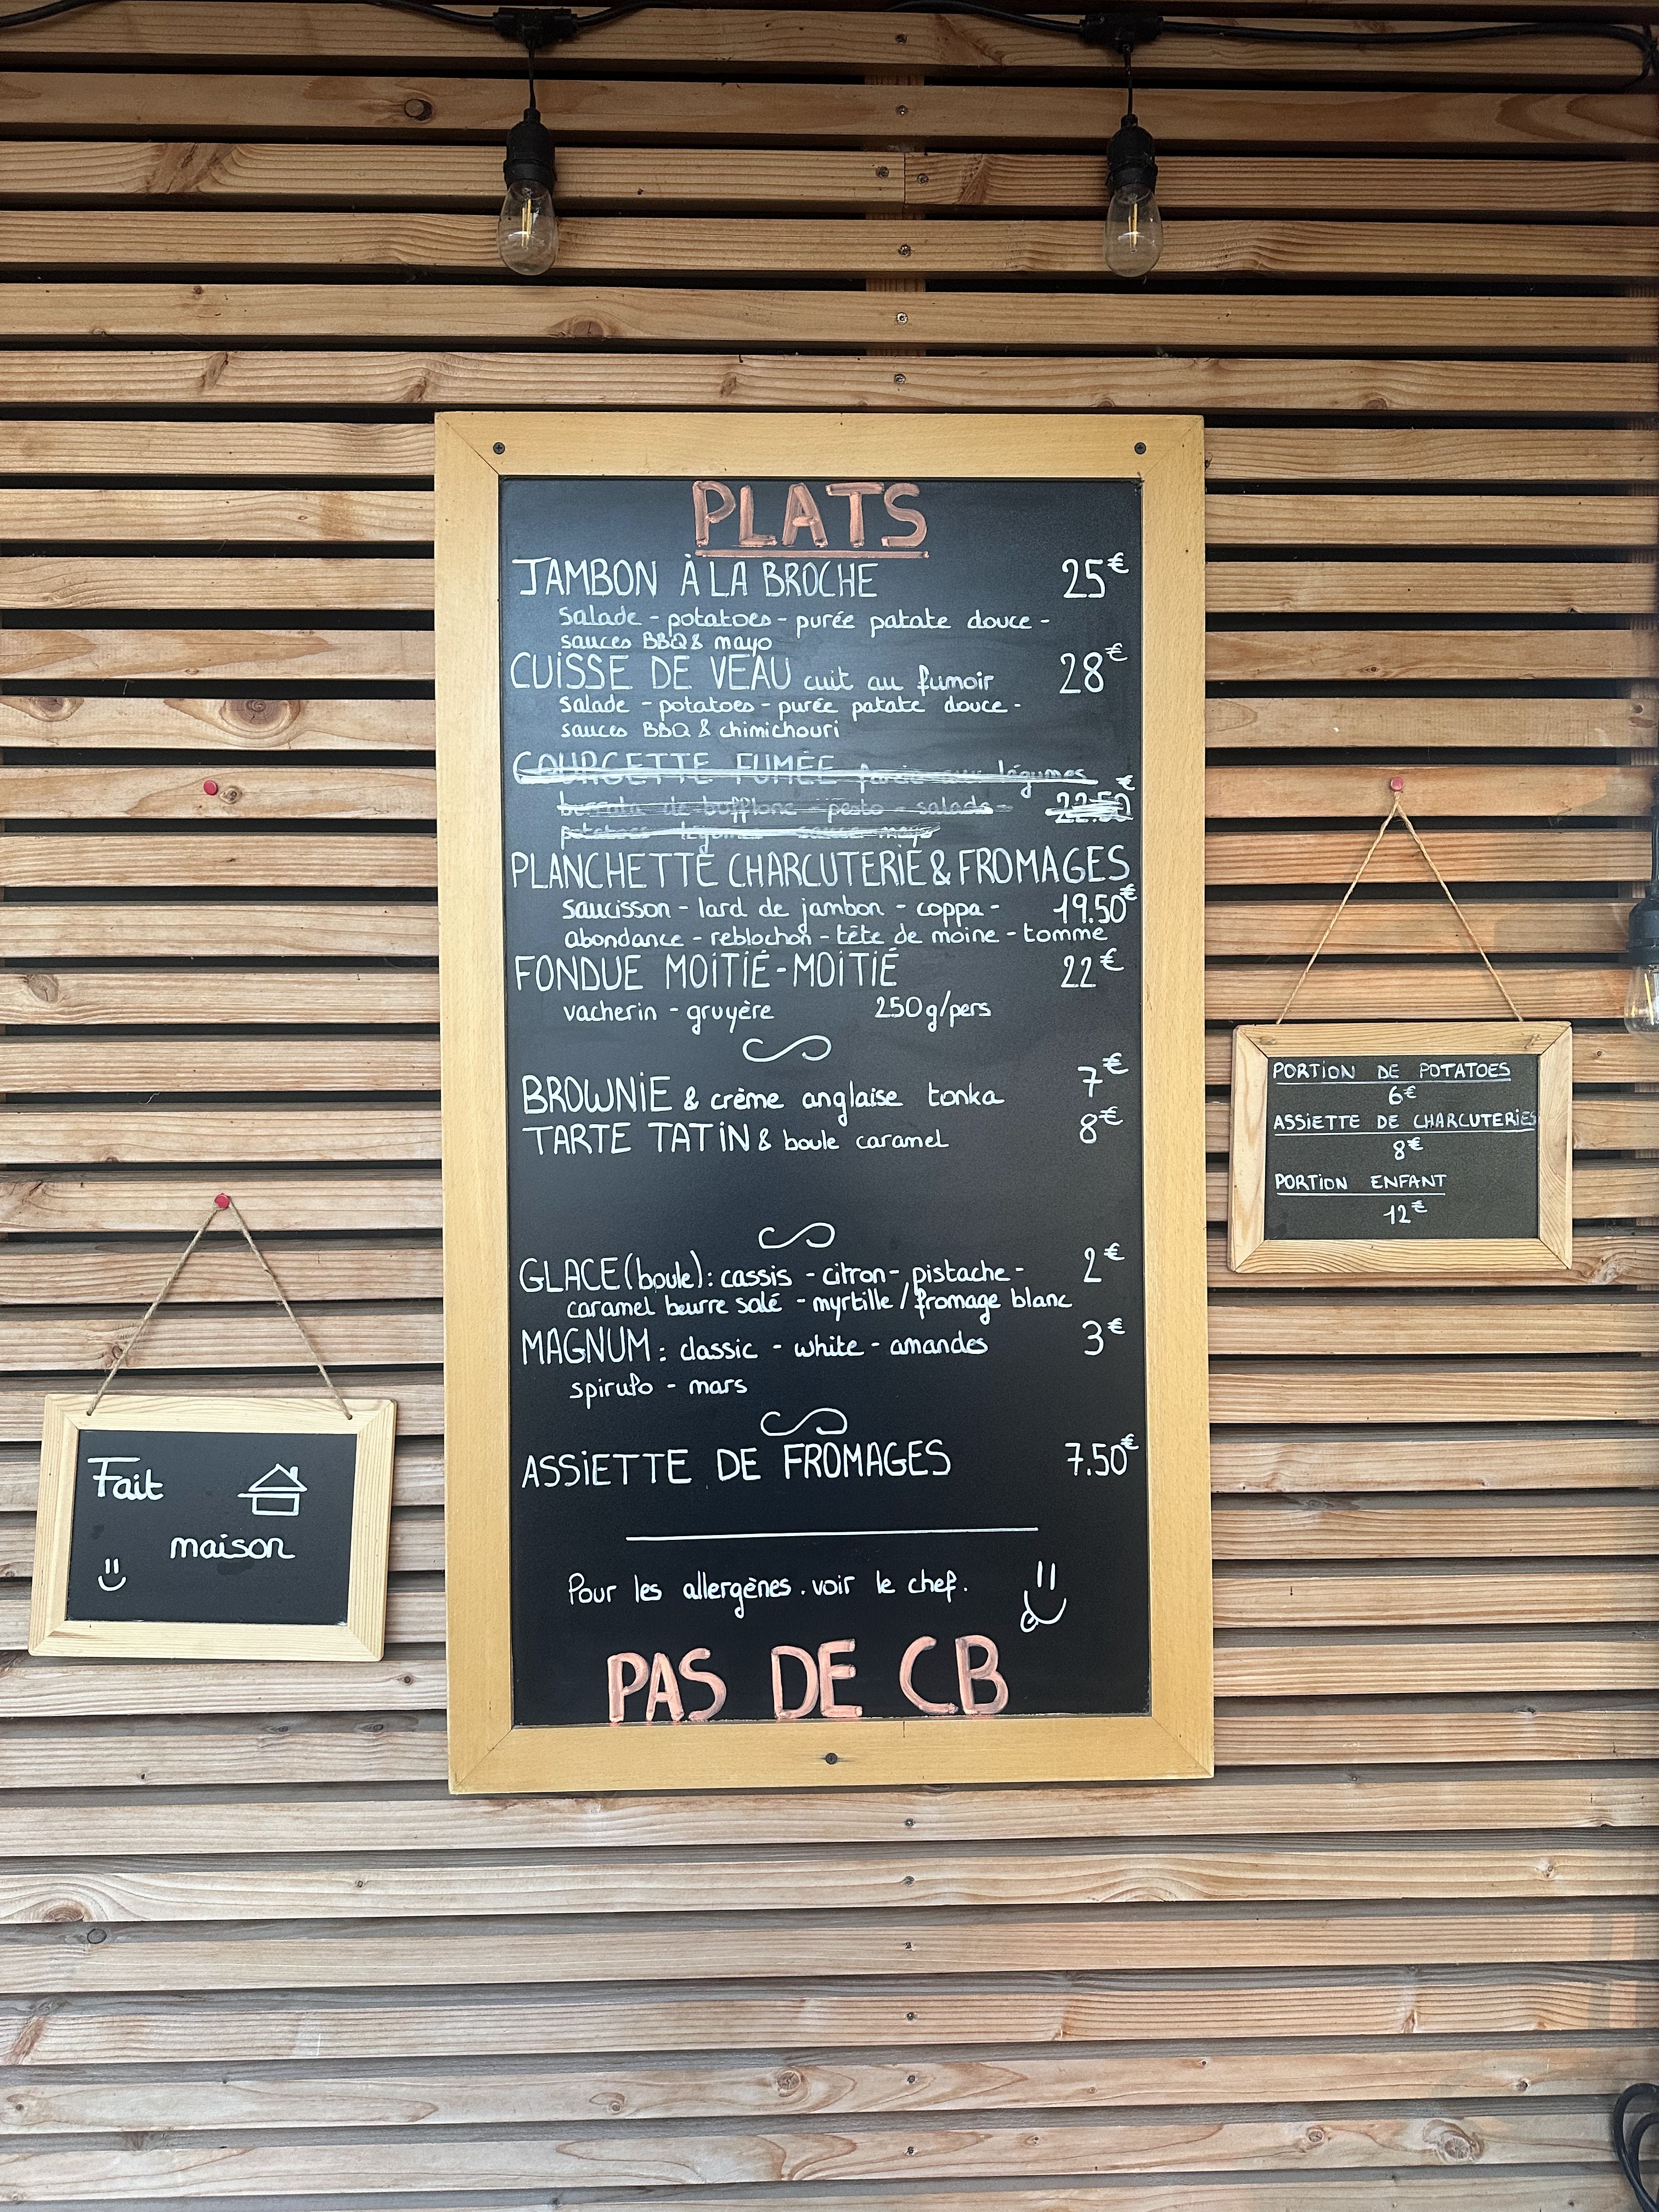 PLATS
JAMBON À LA BROCHE 25€
salade - potatoes - purée patate douce -
sauces BBQ & mayo
CUISSE DE VEAU cuit au fumoir 28€
salade - potatoes - purée patate douce -
sauces BBQ & chimichouri
COURGETTE FUMÉE farcie aux légumes
burrata de bufflone - pesto - salade - 22.50€
potatoes légumes sauce mayo
PLANCHETTE CHARCUTERIE & FROMAGES
saucisson - lard de jambon - coppa - 19.50€
abondance - reblochon - tête de moine - tomme
FONDUE MOITIÉ-MOITIÉ 22€
vacherin - gruyère 250g/pers
BROWNIE & crème anglaise tonka 7€
TARTE TATIN & boule caramel 8€
GLACE (boule): cassis - citron - pistache - 2€
caramel beurre salé - myrtille / fromage blanc
MAGNUM : classic - white - amandes 3€
spirulo - mars
ASSIETTE DE FROMAGES 7.50€
Pour les allergènes. voir le chef.
PAS DE CB
PORTION DE POTATOES
6€
ASSIETTE DE CHARCUTERIES
8€
PORTION ENFANT
12€
Fait
maison